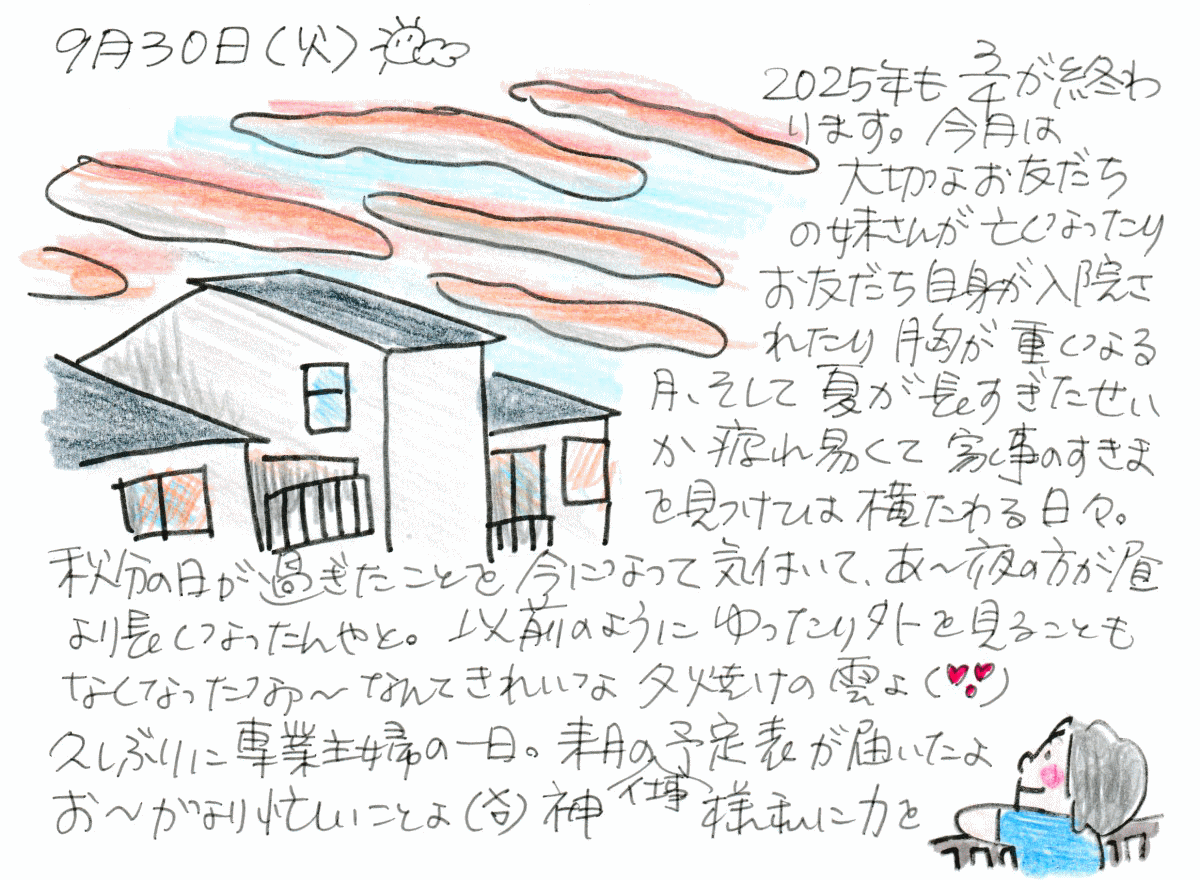 9月30日(火)
2025年も3/4が終わ
ります。今月は
大切なお友だち
の妹さんが亡くなったり
お友だち自身が入院さ
れたり胸が重くなる
月、そして夏が長すぎたせい
か疲れ易くて家事のすきま
を見つけては横たわる日々。
秋分の日が過ぎたことを今になって気付いて、あ〜夜の方が昼
より長くなったんやと。以前のようにゆったり外を見ることも
なくなったなァ〜なんてきれいな夕焼けの雲よ(
久しぶりに専業主婦の一日。来月の予定表が届いたよ
お〜かなり忙しいことよ(笑)神(仕事)様私に力を